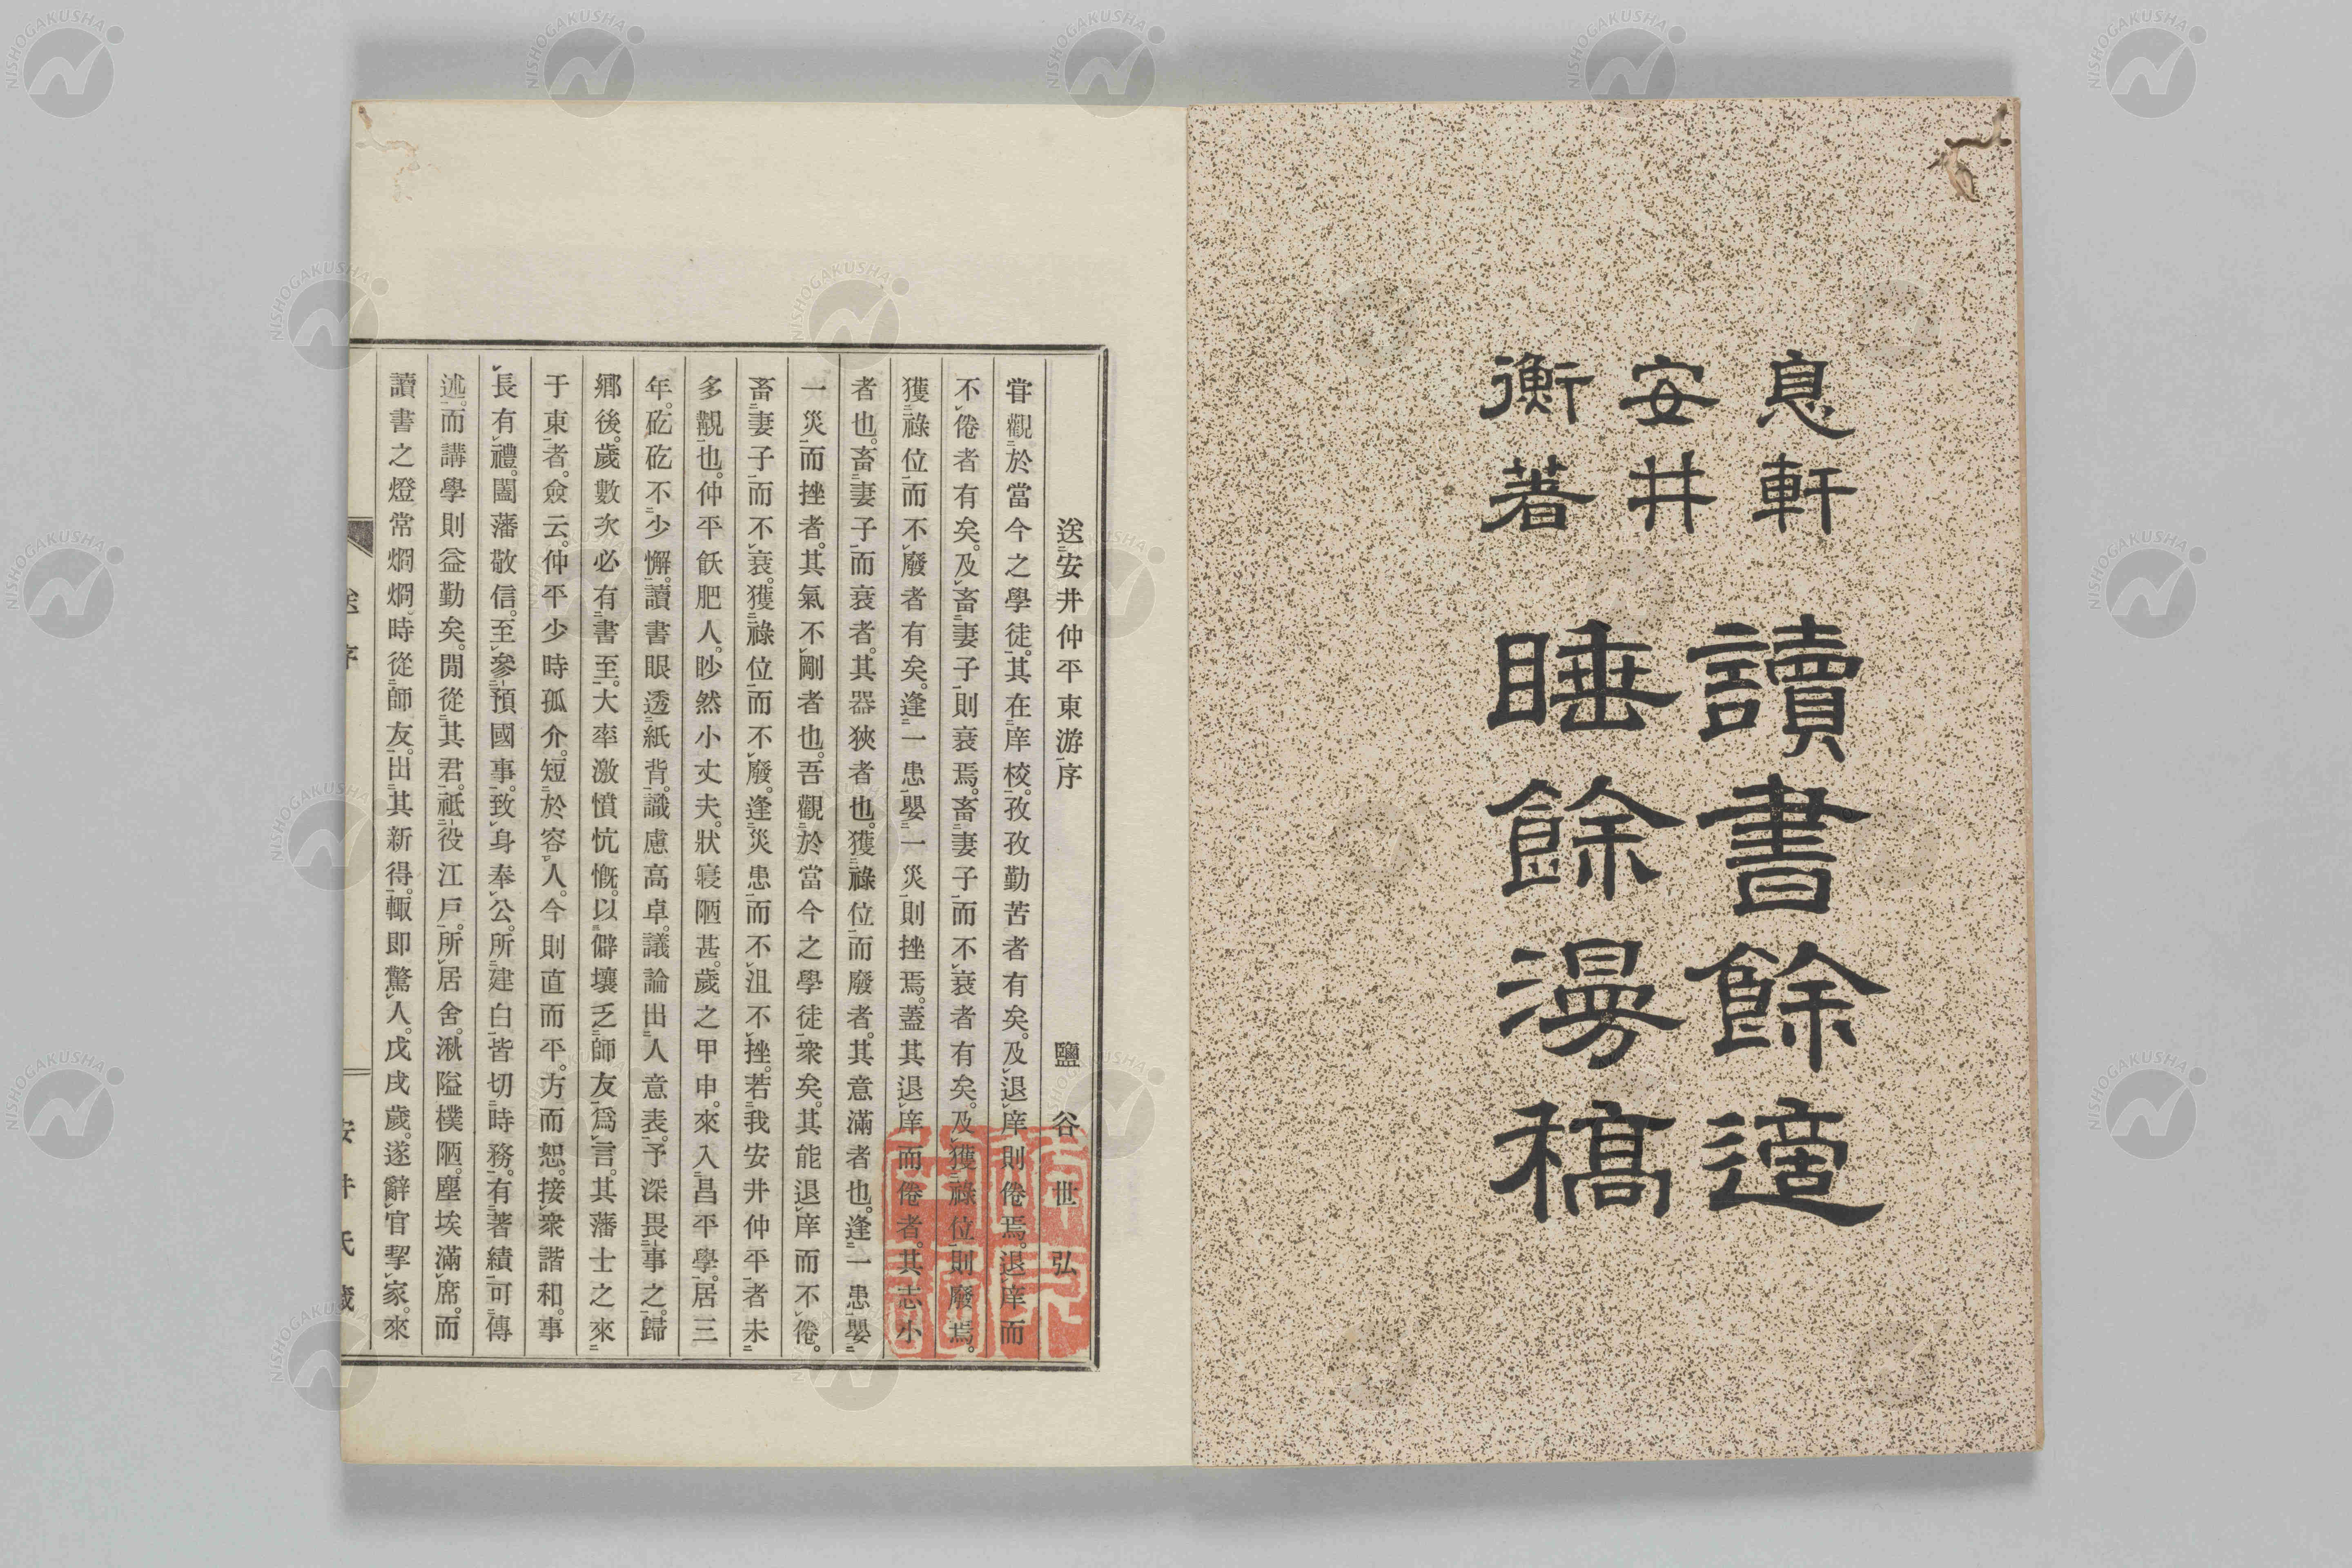 息軒
安井
衡著
讀書餘適
睡餘漫稿
送安井仲平東游序 鹽谷世弘
甞觀於當今之學徒。其在庠校。孜孜勤苦者有矣。及退庠則倦焉。退庠而
不倦者有矣。及畜妻子則衰焉。畜妻子而不衰者有矣。及獲祿位則廢焉。
獲祿位而不廢者有矣。逢一患嬰一災則挫焉。蓋其退庠而倦者。其志小
者也。畜妻子而衰者。其器狹者也。獲祿位而廢者。其意滿者也。逢一患嬰
一災而挫者。其氣不剛者也。吾觀於當今之學徒衆矣。其能退庠而不倦。
畜妻子而不衰。獲祿位而不廢。逢災患而不沮不挫。若我安井仲平者未
多覯也。仲平飫肥人。眇然小丈夫。狀寢陋甚。歲之甲申。來入昌平學。居三
年。矻矻不少懈。讀書眼透紙背。識慮高卓。議論出人意表。予深畏事之。歸
鄉後。歲數次必有書至。大率激憤忼慨。以僻壤乏師友爲言。其藩士之來
于東者。僉云。仲平少時孤介。短於容人。今則直而平。方而恕。接衆諧和。事
長有禮。闔藩敬信。至參預國事。致身奉公。所建白皆切時務。有著績可傳
述。而講學則益勤矣。閒從其君。祗役江戶。所居舍。湫隘樸陋。塵埃滿席。而
讀書之燈常烱烱。時從師友。出其新得。輙即驚人。戊戌歲。遂辭官挈家。來
送序
安井氏藏
NISHOGAKUSHA